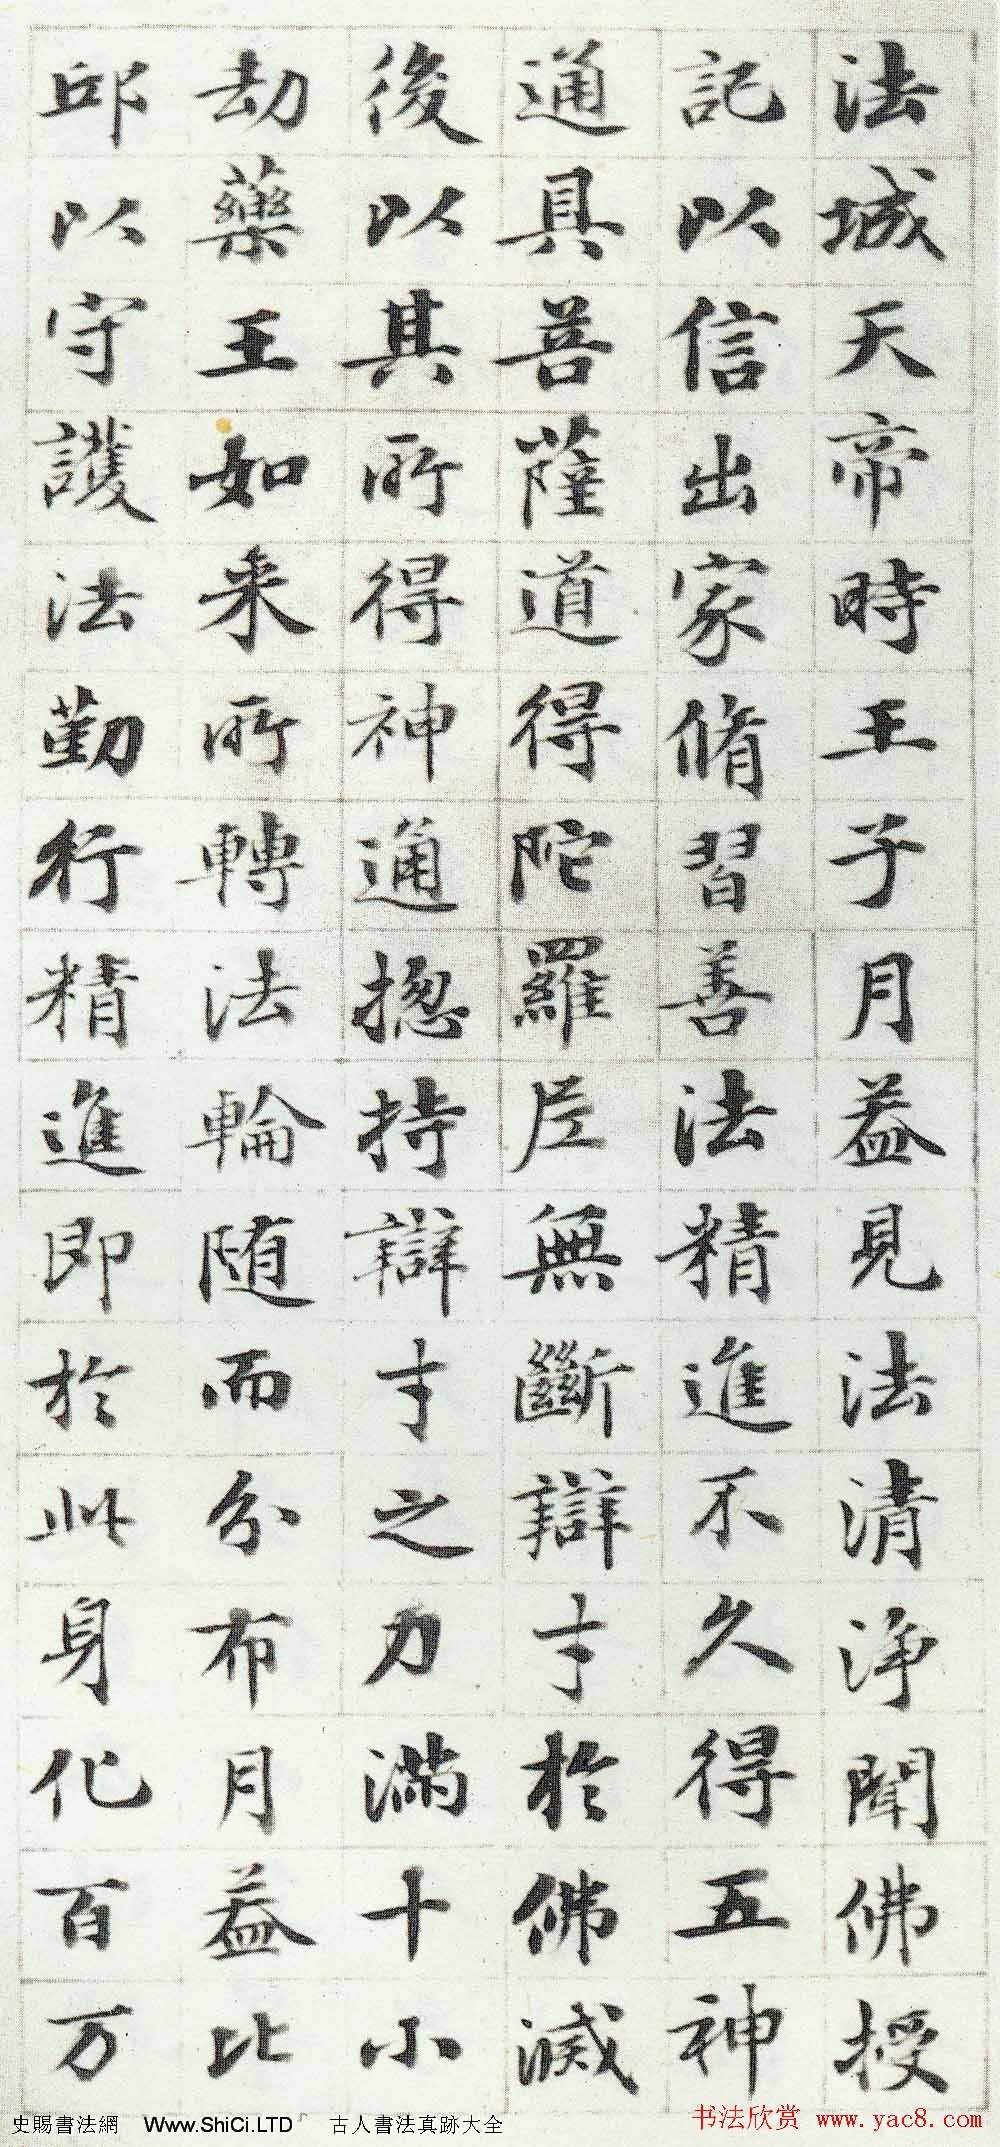 法城天帝時王子月盖見法清浄聞佛授
記以信出家脩習善法精進不久得五神
通具菩薩道得陀羅尼無斷辯才於佛滅
後以其所得神通揔持辯才之力滿十小
劫藥王如来所轉法輪随而分布月盖比
邱以守護法勤行精進即於此身化百万
史賜書法網 Www.ShiCi.LTD 古人書法真跡大全
书法欣赏 www.yac8.com